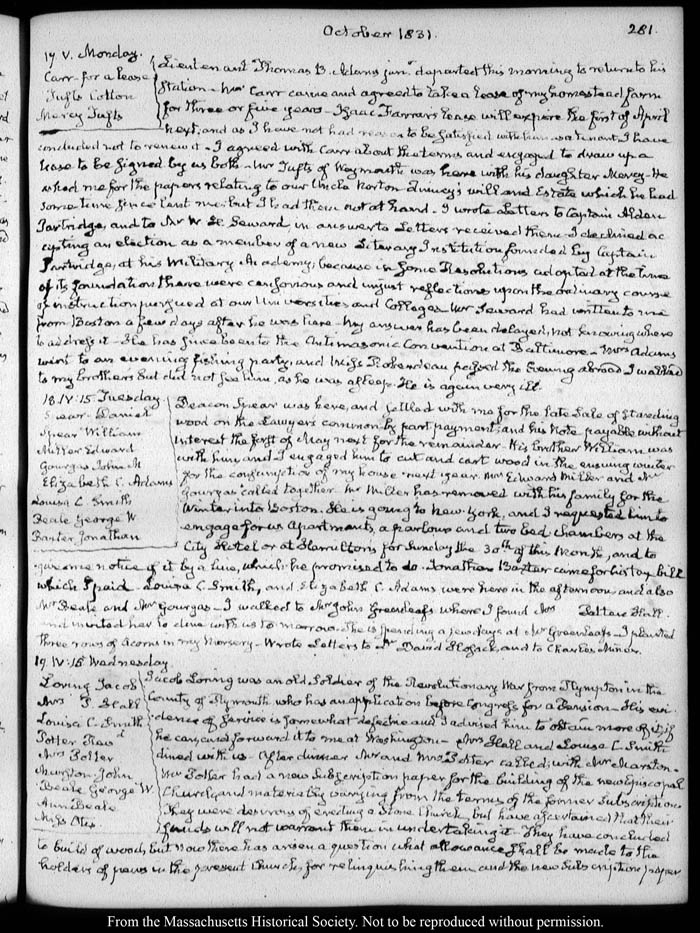 October 1831.
281.
17 V. Monday.
Carr - for a lease
Tufts Cotton
Mercy Tufts
Lieutenant Thomas B. Adams junr. departed this morning to return to his
Station - Mr Carr came and agreed to take a lease of my homestead farm
for three or five years - Isaac Farrar's lease will expire the first of April
next, and as I have not had reason to be satisfied with him as a tenant, I have
concluded not to renew it - I agreed with Carr about the terms and engaged to draw up a
lease to be signed by us both - Mr Tufts of Weymouth was here with his daughter Mercy - He
asked me for the papers relating to our Uncle Norton Quincy's will and Estate which he had
some time since lent me but I had them not at hand - I wrote Letters to Captain Alden
Partridge, and to Mr W. H. Seward, in answer to Letters received them - I declined ac
cepting an election as a member of a new Literary Institution founded by Captain
Partridge, at his Military Academy, because in some Resolutions adopted at the time
of its foundation there were censorious and unjust reflections upon the ordinary course
of instruction pursued at our Universities and Colleges - Mr Seward had written to me
from Boston a few days after he was here - My answer has been delayed, not knowing where
to address it - He has since been to the Antimasonic Convention at Baltimore - Mrs Adams
went to an evening fishing party, and Miss Roberdeau passed the Evening abroad I walked
to my brother's but did not see him, as he was asleep. He is again very ill.
18. IV: 15 Tuesday.
Spear - Daniel
Spear William
Miller Edward
Gourgas John M
Elizabeth C. Adams
Louisa C. Smith
Beale George W
Baxter Jonathan
Deacon Spear was here, and settled with me for the late Sale of standing
wood on the Lawyers common, by part payment, and his Note payable without
interest the first of May next for the remainder. His brother William was
with him, and I engaged him to cut and cart wood in the ensuing winter
for the consumption of my house next year. Mr Edward Miller and Mr
Gourgas called together. Mr Miller has removed with his family for the
Winter into Boston. He is going to New York, and I requested him to
engage for us Apartments, a parlour and two bed chambers at the
City Hotel or at Hamiltons for Sunday the 30th of this Month, and to
give me notice of it by a line, which he promised to do. Jonathan Baxter came for his tax bill
which I paid - Louisa C. Smith, and Elizabeth C. Adams were here in the afternoon and also
Mr Beale and Mr Gourgas - I walked to Mrs John Greenleafs where I found Mrs Hall.
and invited her to dine with us to-morrow. She is spending a few days at Mr Greenleafs - I planted
three rows of acorns in my Nursery - Wrote Letters to Dr David Hosack, and to Charles Miner.
19. IV: 15 Wednesday
Loring Jacob
Mrs Hall
Louisa C. Smith
Potter Revd.
Mrs Potter
Marston - John
Beale George W.
Ann Beale
Miss Otis.
Jacob Loring was an old Soldier of the Revolutionary War from Plympton in the
County of Plymouth who has an application before Congress for a Pension - His evi
dence of Service is somewhat defective and I advised him to obtain more of it, if
he can, and forward it to me at Washington - Mrs Hall and Louisa C. Smith
dined with us - After dinner Mr and Mrs Potter called; with Mr Marston -
Mr Potter had a new Subscription paper for the building of the new Episcopal
Church, and materially varying from the terms of the former Subscription
They were desirous of erecting a Stone Church, but have ascertained that their
funds will not warrant them in undertaking it. They have concluded
to build of wood, but now there has arisen a question what allowance shall be made to the
holders of pews in the present Church, for relinquishing them, and the new Subscription paper
From the Massachusetts Historical Society. Not to be reproduced without permission.